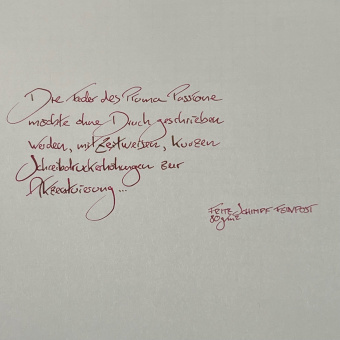 Die Feder des Piuma Passione
möchte ohne Druck geschrieben
werden, mit zeitweisen, kurzen
Schreibdruckerhöhungen zur
Akzentuierung...
FRITZ SCHIMPF FEINPOST
80g/m²